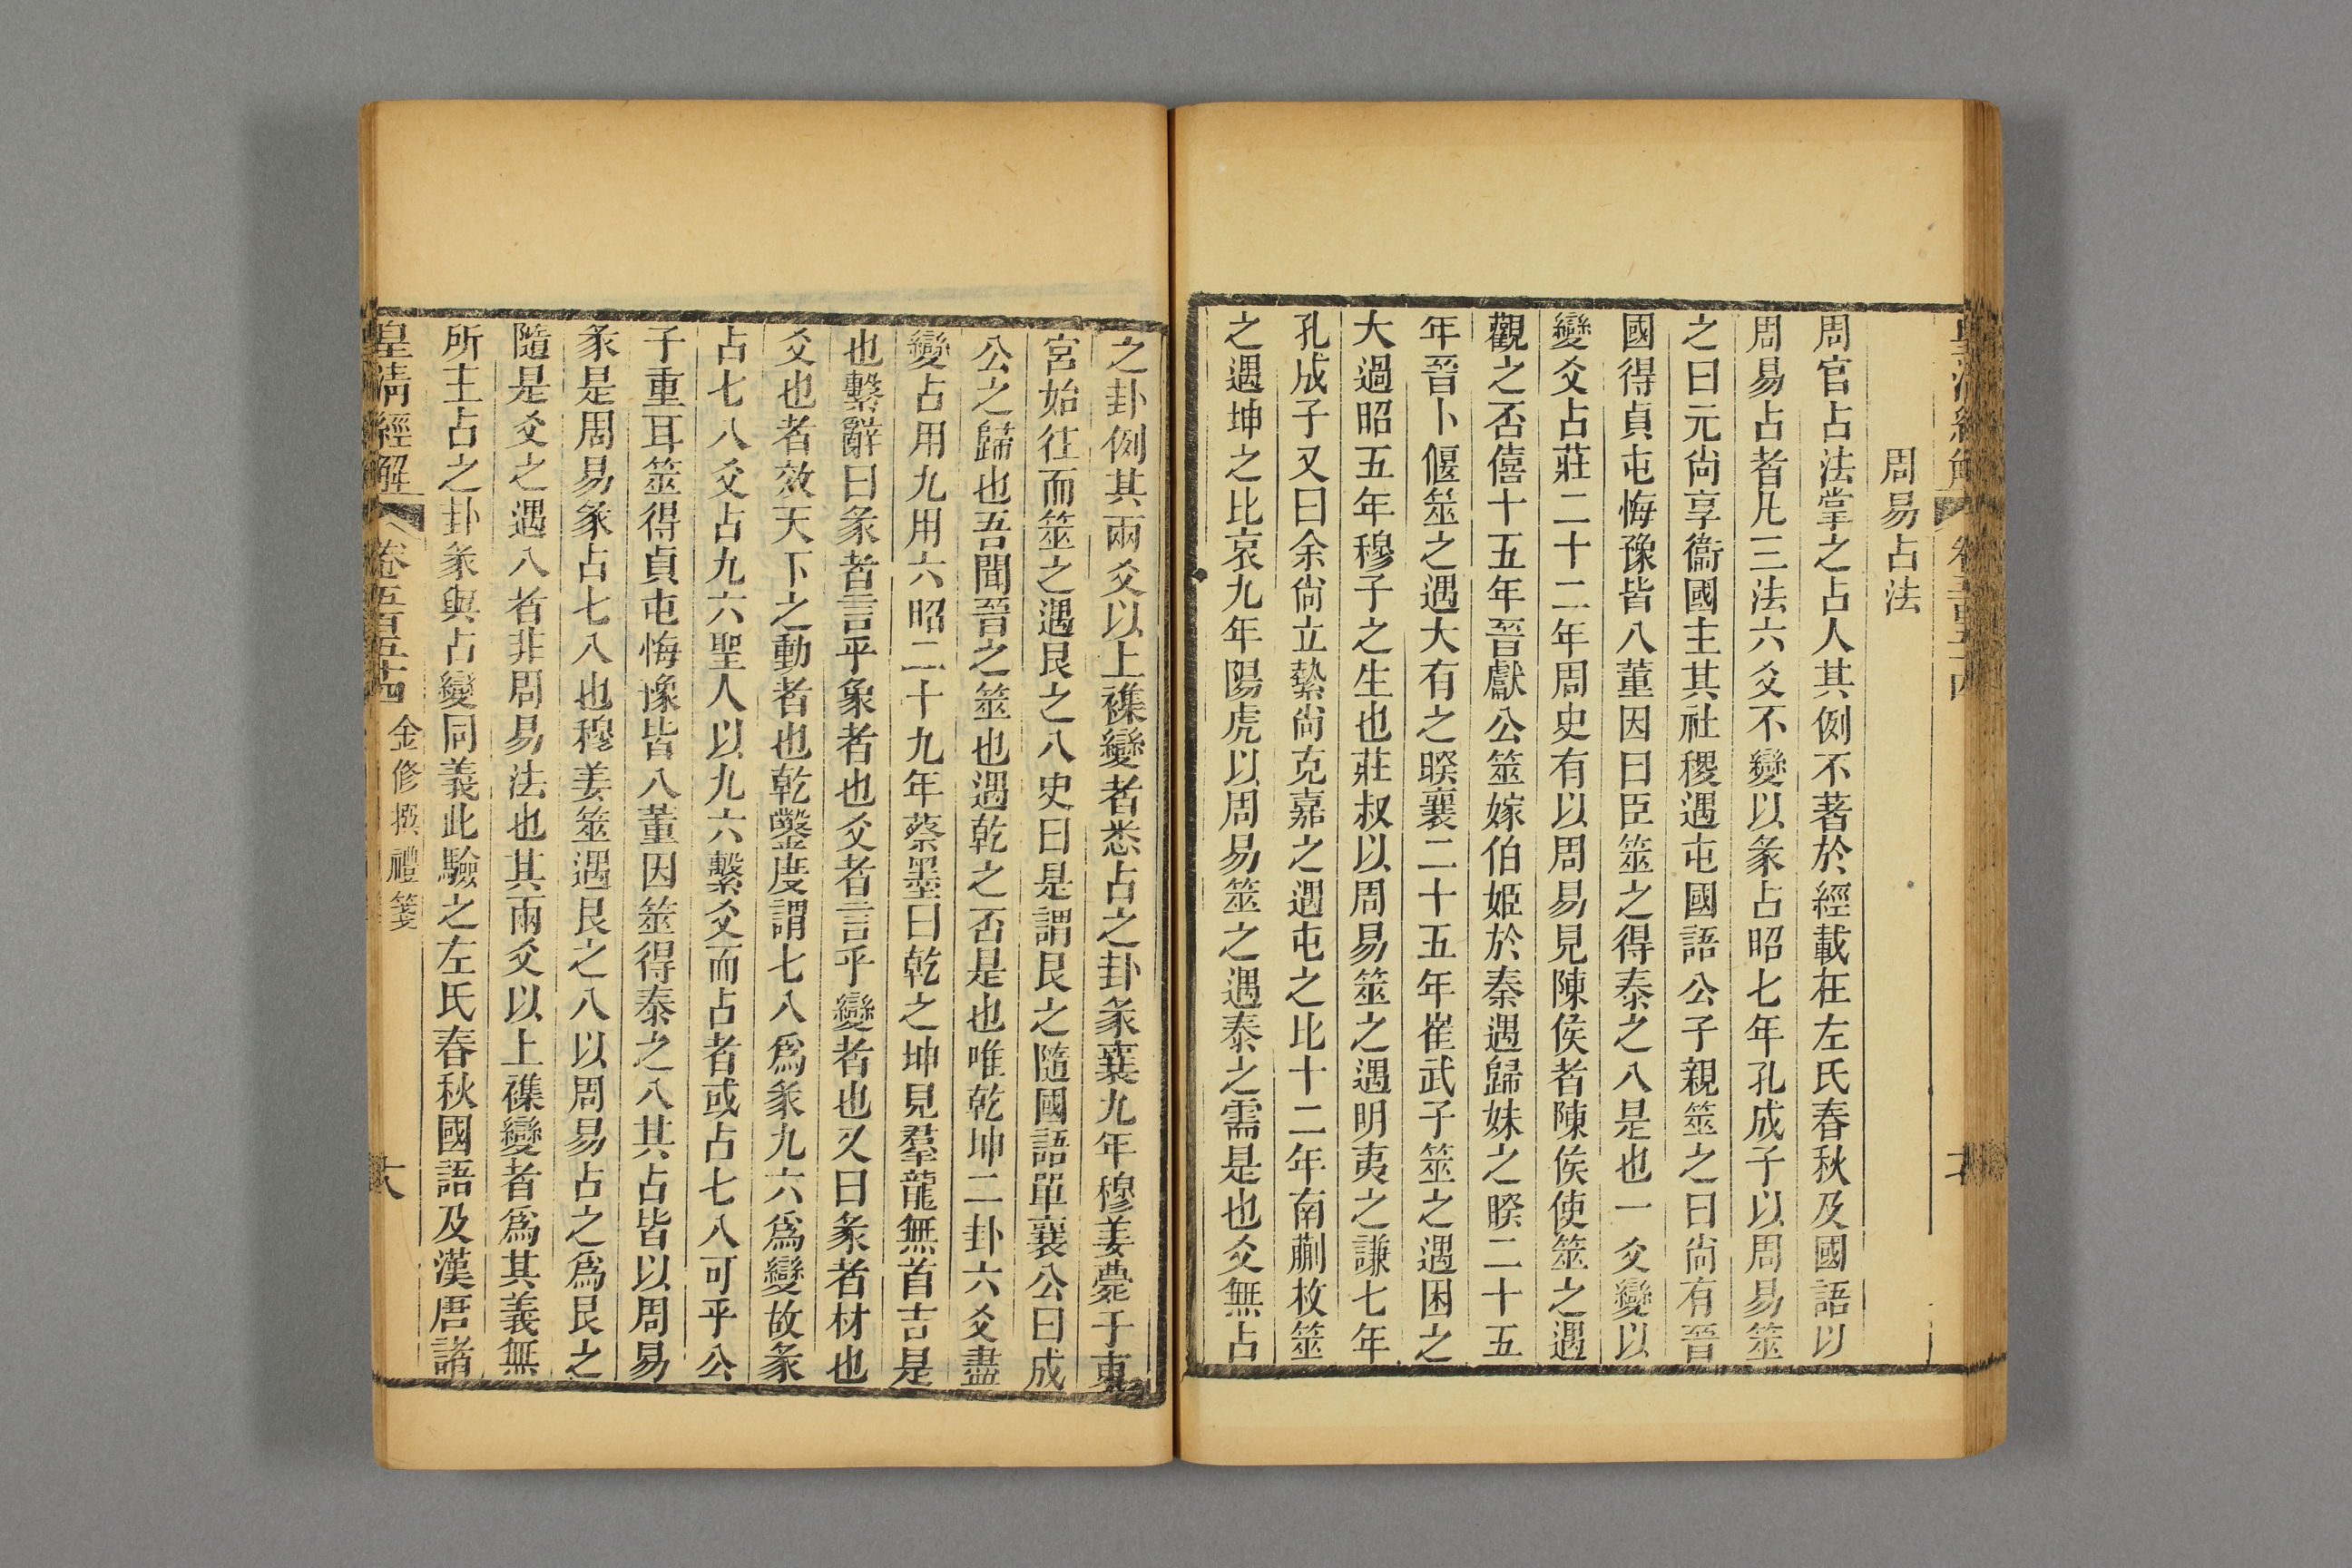 周易占法
周官占法掌之占人其例不著於經載在左氏春秋及國語以
周易占者凡三法六爻不變以彖占昭七年孔成子以周易筮
之曰元尚享衞國主其社稷遇屯國語公子親筮之曰尚有晉
國得貞屯悔豫皆八董因曰臣筮之得泰之八是也一爻變以
變爻占莊二十二年周史有以周易見陳侯者陳侯使筮之遇
觀之否僖十五年晉獻公筮嫁伯姬於秦遇歸妹之睽二十五
年晉卜偃筮之遇大有之睽襄二十五年崔武子筮之遇困之
大過昭五年穆子之生也莊叔以周易筮之遇明夷之謙七年
孔成子又曰余尚立縶尚克嘉之遇屯之比十二年南蒯枚筮
之遇坤之比哀九年陽虎以周易筮之遇泰之需是也爻無占
之卦例其兩爻以上襍變者悉占之卦彖襄九年穆姜薨于東
宮始往而筮之遇艮之八史曰是謂艮之隨國語單襄公曰成
公之歸也吾聞晉之筮也遇乾之否是也唯乾坤二卦六爻盡
變占用九用六昭二十九年蔡墨曰乾之坤見羣龍無首吉是
也繫辭曰彖者言乎象者也爻者言乎變者也又曰彖者材也
爻也者效天下之動者也乾鑿度謂七八爲彖九六爲變故彖
占七八爻占九六聖人以九六繫爻而占者或占七八可乎公
子重耳筮得貞屯悔豫皆八董因筮得泰之八其占皆以周易
彖是周易彖占七八也穆姜筮遇艮之八以周易占之爲艮之
隨是爻之遇八者非周易法也其兩爻以上襍變者爲其義無
所主占之卦彖與占變同義此驗之左氏春秋國語及漢唐諸
皇淸經解
卷五百五十四
金修撰禮箋
六